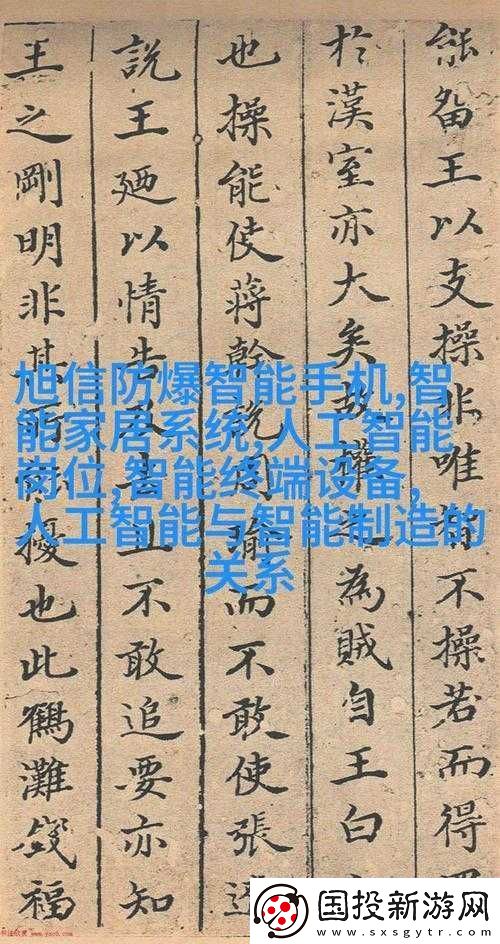 能畱王以支操非唯不操若而得
於漢室亦大矣故權為賊自王白
也操能使蔣幹說周瑜而不敢使張遼
說王廼以情告且不敢追要亦知
王之剛明非其所擾也此鶴灘錢福
旭信防爆智能手机,智
能家居系统,人工智能
岗位,智能终端设备,
人工智能与智能制造的
关系
国投新游网
www.sxsgytr.com